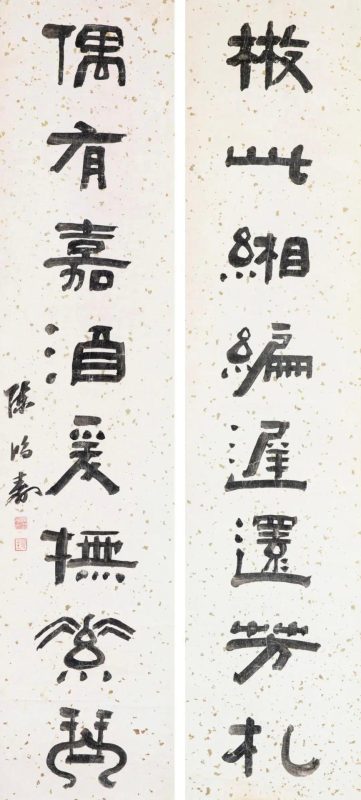 㪔此緗編遲還芳札
偶有嘉酒爰撫素琴
陳鴻壽